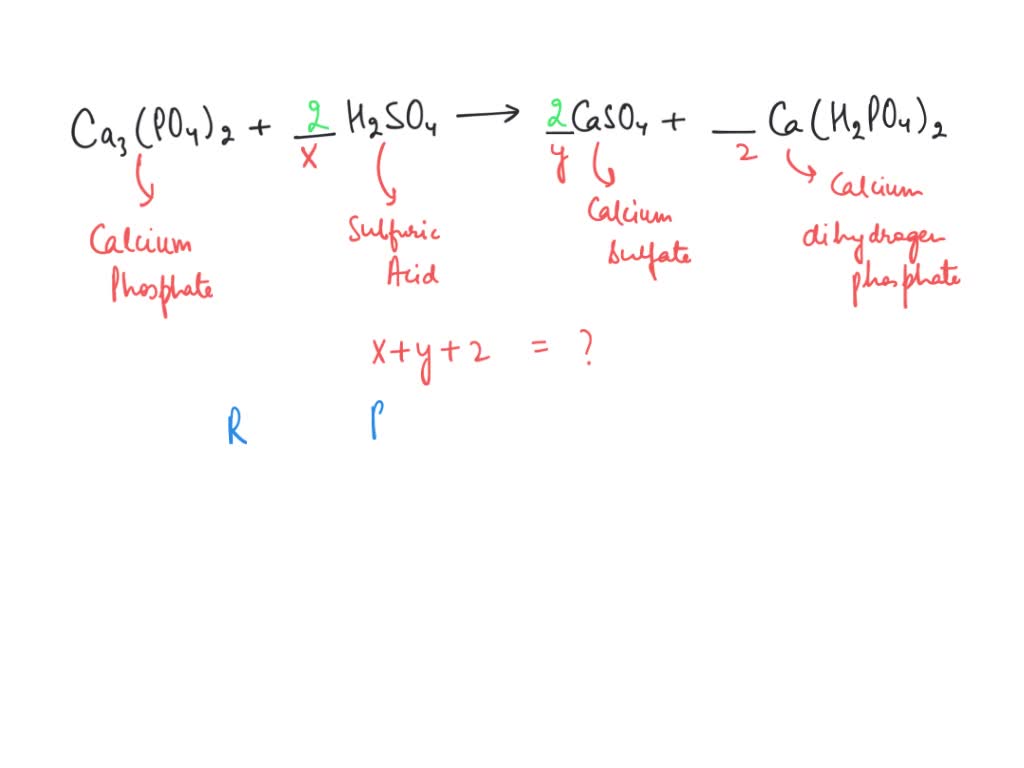 Ca₃(PO₄)₂ + 2 H₂SO₄ ⟶ 2 CaSO₄ + __ Ca(H₂PO₄)₂
x y 2
Calcium Phosphate
Sulfuric Acid
Calcium Sulfate
Calcium dihydrogen phosphate
x+y+2 = ?
R P